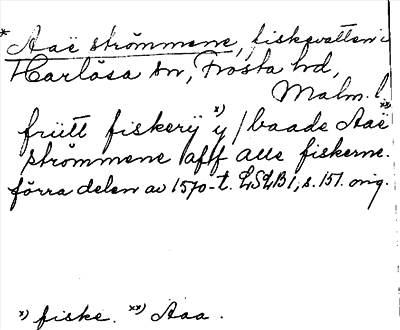 * Aaë strömmene, fiskevatten i
Harlösa sn, Frosta hd,
Malm. l.
friitt fiskerÿ x) ÿ / baade Aaë xx)
strömmene aff alle fiskerne.
förra delen av 1570-t. LSLB 1, s. 151. orig.
x) fiske. xx) Aaa.